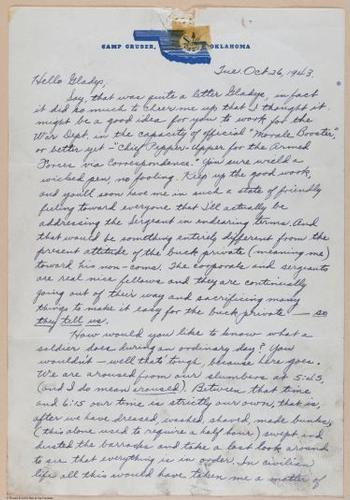 CAMP GRUBER, OKLAHOMA
Tue. Oct 26, 1943.
Hello Gladys,
Say, that was quite a letter Gladys, in fact
it did so much to cheer me up that I thought it
might be a good idea for you to work for the
War Dept. in the capacity of official "Morale Booster,"
or better yet - "Chief Pepper-Upper for the Armed
Forces via Correspondence." You sure wield a
wicked pen, no fooling. Keep up the good work,
and you'll soon have me in such a state of friendly
feeling toward everyone that I'll actually be
addressing the Sergeant in endearing terms. And
that would be something entirely different from the
present attitude of the buck private (meaning me)
toward his non-coms. The corporals and sergeants
are real nice fellows and they are continually
going out of their way and sacrificing many
things to make it easy for the buck private — so
they tell us.
How would you like to know what a
soldier does during an ordinary day? You
wouldn't - well that's tough, because here goes.
We are aroused from our slumbers at 5:45,
(and I do mean aroused). Between that time
and 6:15 our time is strictly our own, that is,
after we have dressed, washed, shaved, made bunks,
(this alone used to require a half hour) swept and
dusted the barracks and take a last look around
to see that everything is in order. In civilian
life all this would have taken me a matter of